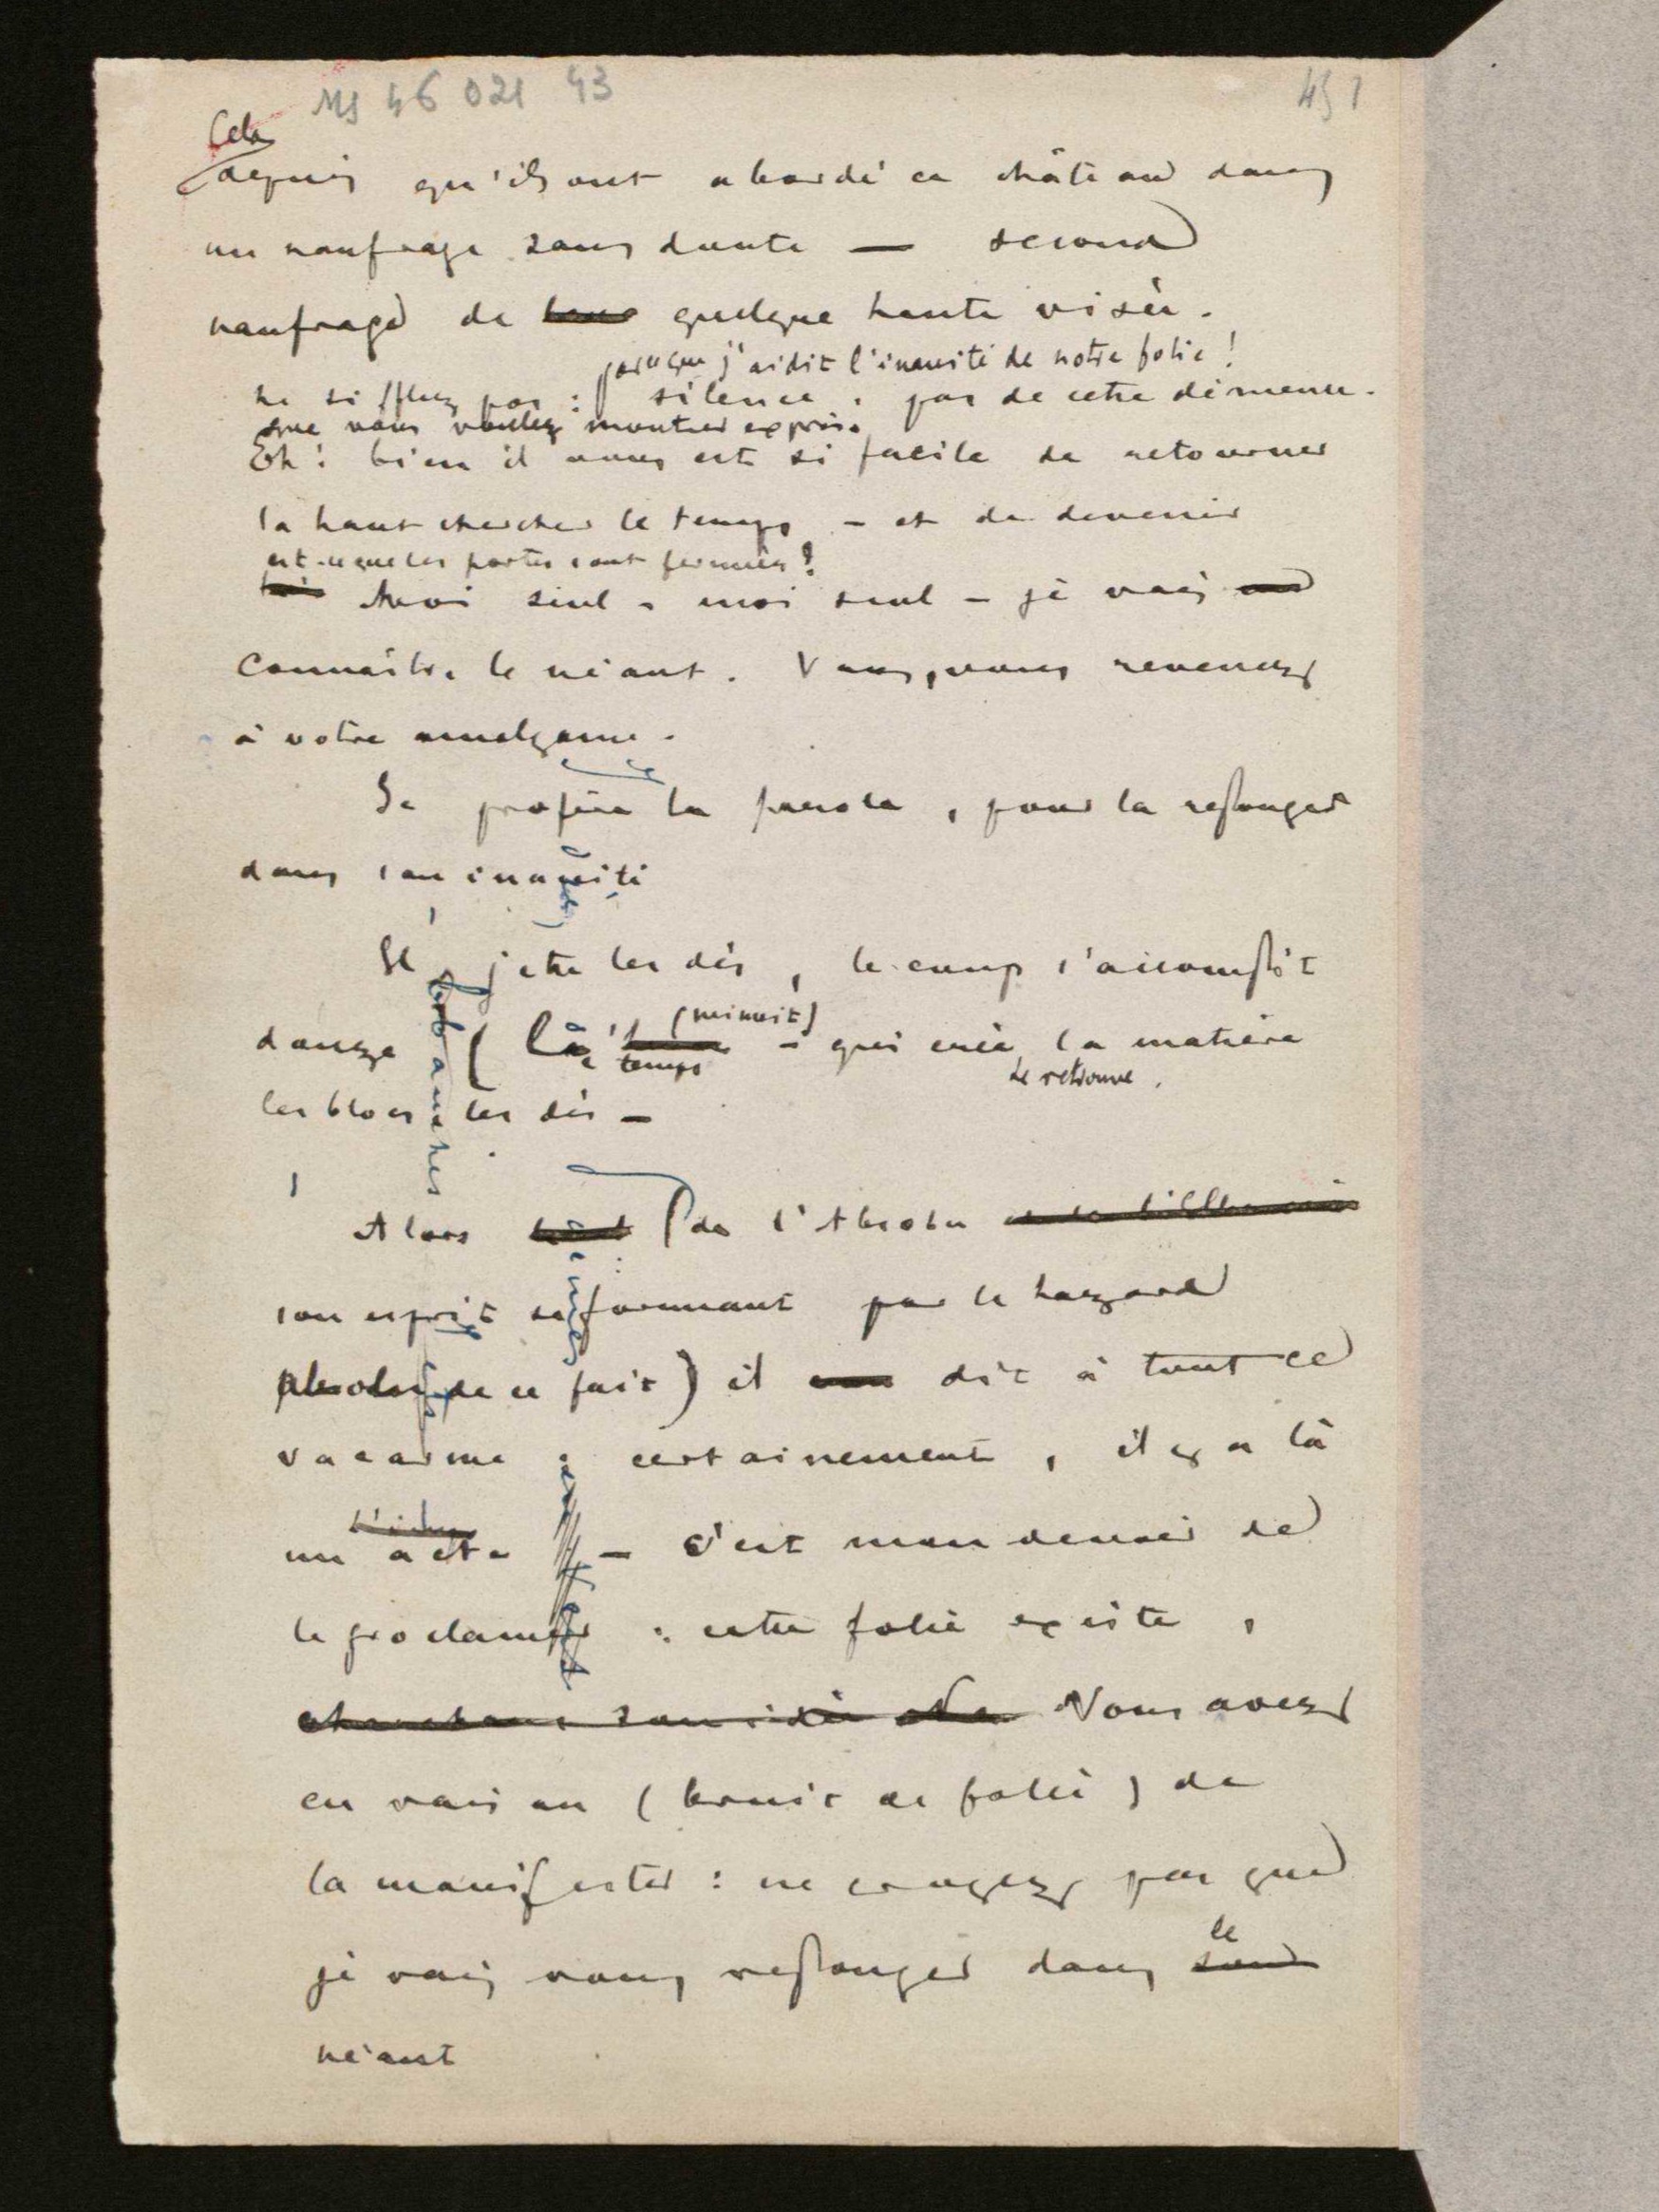 MS 46 021 43
451
Cela
depuis qu'ils ont abordé ce château dans
un naufrage sans doute — second
naufrage de quelque haute visée.
parce que j'ai dit l'inanité de notre folie !
ne sifflez pas : silence, pas de cette démence
que vous voulez montrer exprès.
Eh ! bien il vous est si facile de retourner
là haut chercher le temps — et de devenir
est-ce que les portes sont fermées ?
Moi seul — moi seul — je vais
connaître le néant. Vous, vous revenez
à votre amalgame.
Je profère la parole, pour la replonger
dans son inanité
Il jette les dés, le coup s'accomplit
(minuit)
douze ( le temps — qui créa la matière
se retrouve
les blocs, les dés —
Alors de l'Absolu
son esprit se formant par le hazard
absolu de ce fait) il dit à tout ce
vacarme : certainement, il y a là
un acte — c'est mon devoir de
le proclamer : cette folie existe,
Vous avez
eu raison (bruit de folie) de
la manifester : ne croyez pas que
je vais vous replonger dans
le
néant
ébauches